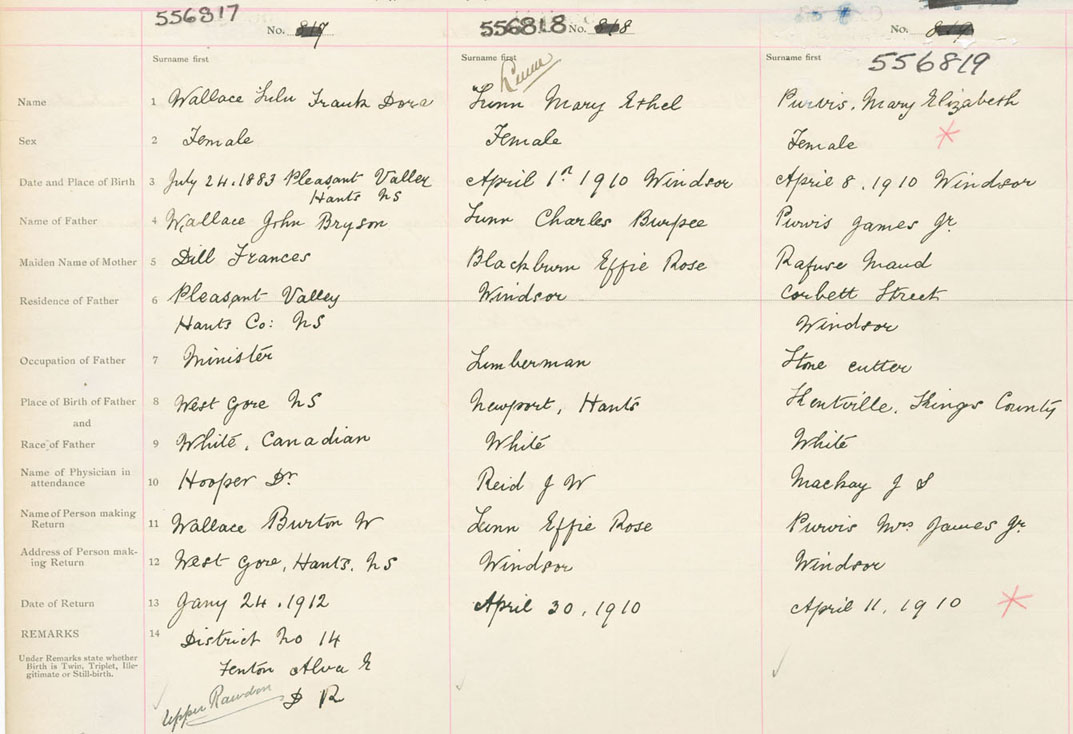 556817
No. 817
556818 No. 818
No. 819
556819
Surname first
Surname first
Surname first
Lunn
Name 1 Wallace Lulu Frank Dora
Lunn Mary Ethel
Purvis, Mary Elizabeth
Sex 2 Female
Female
Female
Date and Place of Birth 3 July 24. 1883 Pleasant Valley
Hants NS
April 1st 1910 Windsor
April 8, 1910 Windsor
Name of Father 4 Wallace John Bryson
Lunn Charles Burpee
Purvis James Jr.
Maiden Name of Mother 5 Dill Frances
Blackburn Effie Rose
Rafuse Maud
Residence of Father 6 Pleasant Valley
Hants Co: NS
Windsor
Corbett Street
Windsor
Occupation of Father 7 Minister
Lumberman
Stone cutter
Place of Birth of Father 8 West Gore NS
Newport, Hants
Kentville, Kings County
and
Race of Father 9 White, Canadian
White
White
Name of Physician in
attendance 10 Hooper Dr
Reid J W
Mackay J S
Name of Person making
Return 11 Wallace Burton W
Lunn Effie Rose
Purvis Mrs James Jr.
Address of Person mak-
ing Return 12 West Gore, Hants. NS
Windsor
Windsor
Date of Return 13 Jany 24. 1912
April 30, 1910
April 11, 1910
REMARKS 14 District No 14
Under Remarks state whether
Birth is Twin, Triplet, Ille-
gitimate or Still-birth.
Fenton Alva E
D R
Upper Rawdon